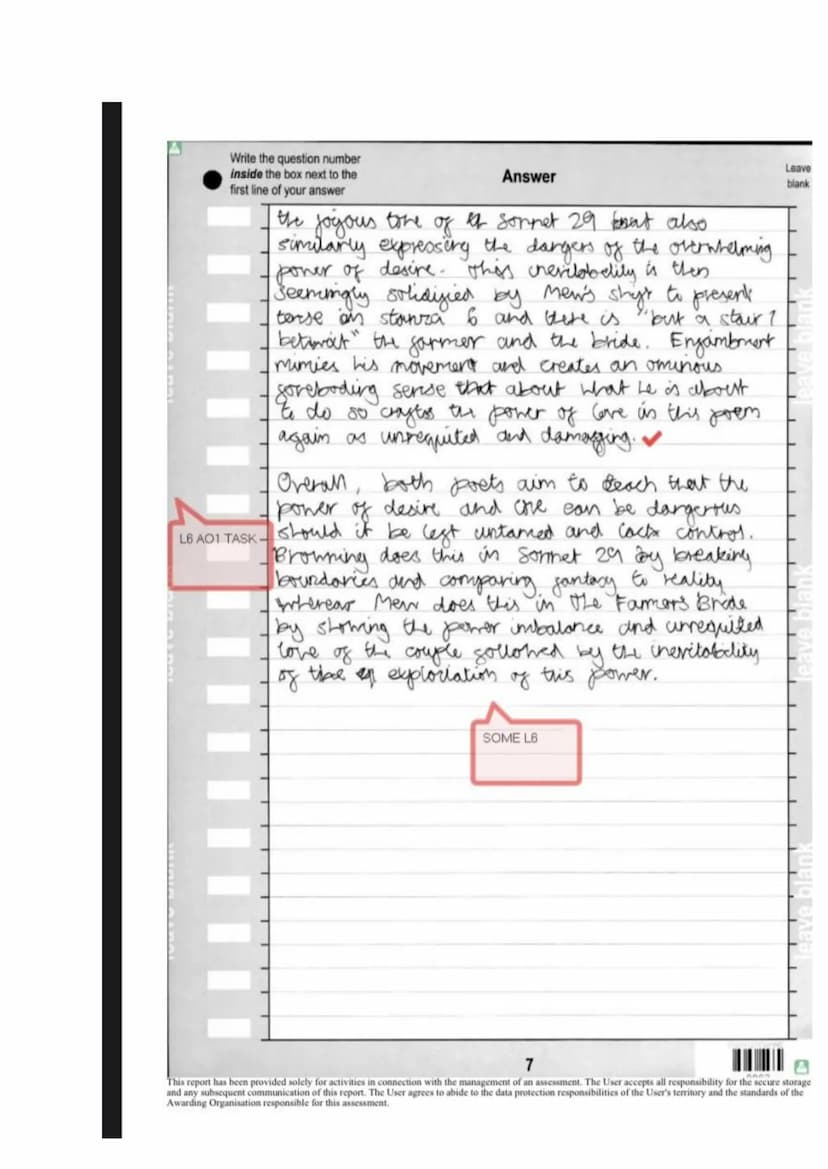 Write the question number
inside the box next to the
first line of your answer
Answer
Leave
blank
the joyous tone of Sonnet 29 but also
similarly expressing the dangers of the overwhelming
power of desire. This inevitability is then
seemingly solidified by Mew's shift to present
tense in stanza 6 and there is "but a stair
betwixt" the farmer and the bride. Enjambment
mimics his movement and creates an ominous
foreboding sense about what he is about
to do so crafts the power of love in this poem
again as unrequited and damaging.
Overall, both poets aim to teach that the
power of desire and can be dangerous
L6 AO1 TASK
should it be left untamed and lack control.
Browning does this in Sonnet 29 by breaking
boundaries and comparing fantasy to reality
whereas Mew does this in The Farmers Bride
by showing the power imbalance and unrequited
love of the couple followed by the inevitability
of the exploitation of this power.
SOME L6
leave blank
leave blank
leave blank
7
This report has been provided solely for activities in connection with the management of an assessment. The User accepts all responsibility for the secure storage
and any subsequent communication of this report. The User agrees to abide to the data protection responsibilities of the User's territory and the standards of the
Awarding Organisation responsible for this assessment.